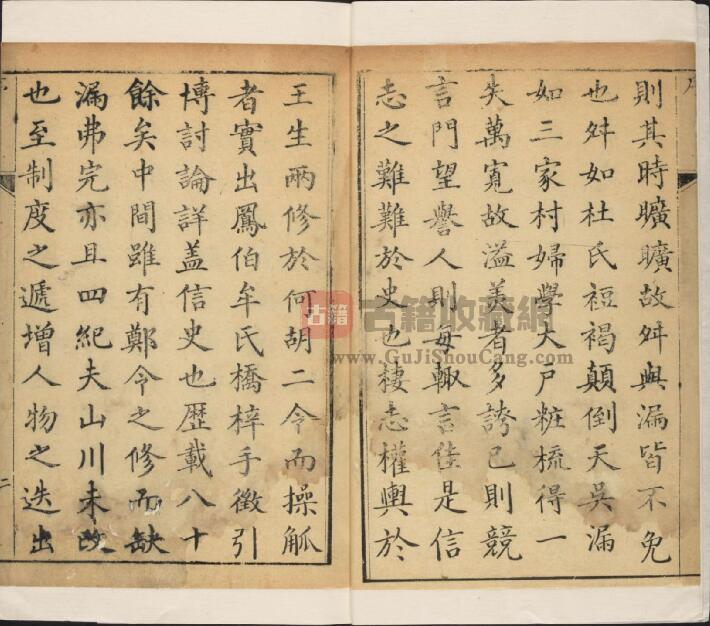 則其時曠曠故舛與漏皆不免
也舛如杜氏裋褐顛倒天吳漏
如三家村婦學大戶粧梳得一
失萬寬故溢美者多誇已則競
言門望譽人則每輙言佳是信
志之難難於史也棲志權輿於
王生兩修於何胡二令而操觚
者實出鳳伯牟氏橋梓手徵引
博討論詳盖信史也歷載八十
餘矣中間雖有鄭令之修而缺
漏弗完亦且四紀夫山川未改
也至制度之遞增人物之迭出
二
古籍
古籍收藏網
www.GuJiShouCang.com